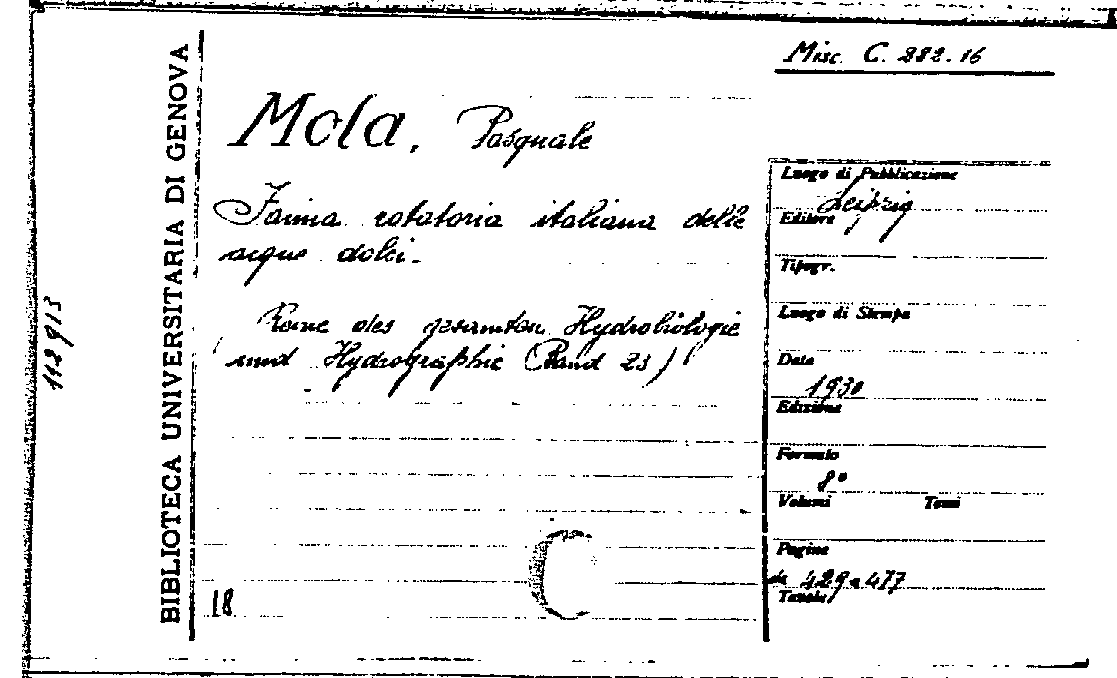 Misc. C. 282.16
BIBLIOTECA UNIVERSITARIA DI GENOVA
112913
Mola, Pasquale
Fauna rotatoria italiana delle
acque dolci.
des gesamten Hydrobiologie
und Hydrographie (Band 23)
18
Luogo di Pubblicazione
Leipzig
Editore
Tipogr.
Luogo di Stampa
Data
1930
Edizione
Formato
8°
Volumi Tomi
Pagine
da 429 a 477
Tavole